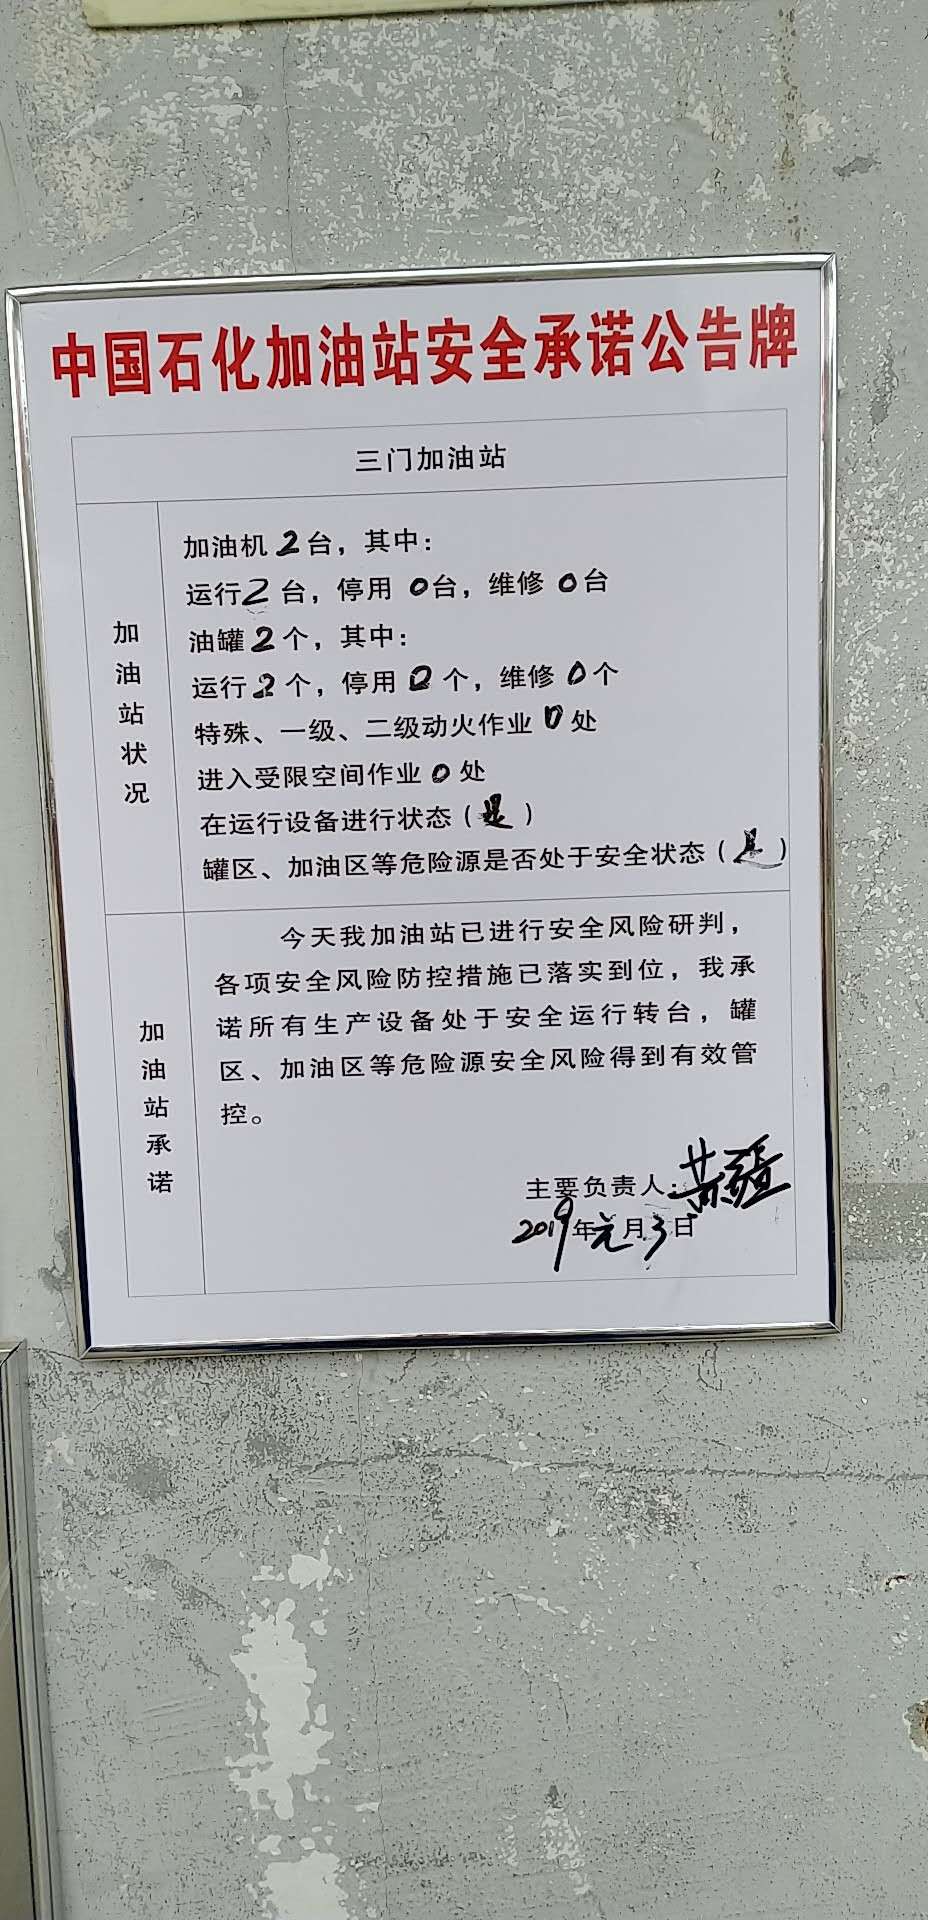 中国石化加油站安全承诺公告牌
三门加油站
加油站状况
加油机2台，其中：
运行2台，停用0台，维修0台
油罐2个，其中：
运行2个，停用0个，维修0个
特殊、一级、二级动火作业0处
进入受限空间作业0处
在运行设备进行状态（是）
罐区、加油区等危险源是否处于安全状态（是）
加油站承诺
今天我加油站已进行安全风险研判，
各项安全风险防控措施已落实到位，我承
诺所有生产设备处于安全运行转台，罐
区、加油区等危险源安全风险得到有效管
控。
主要负责人：
2019年元月3日